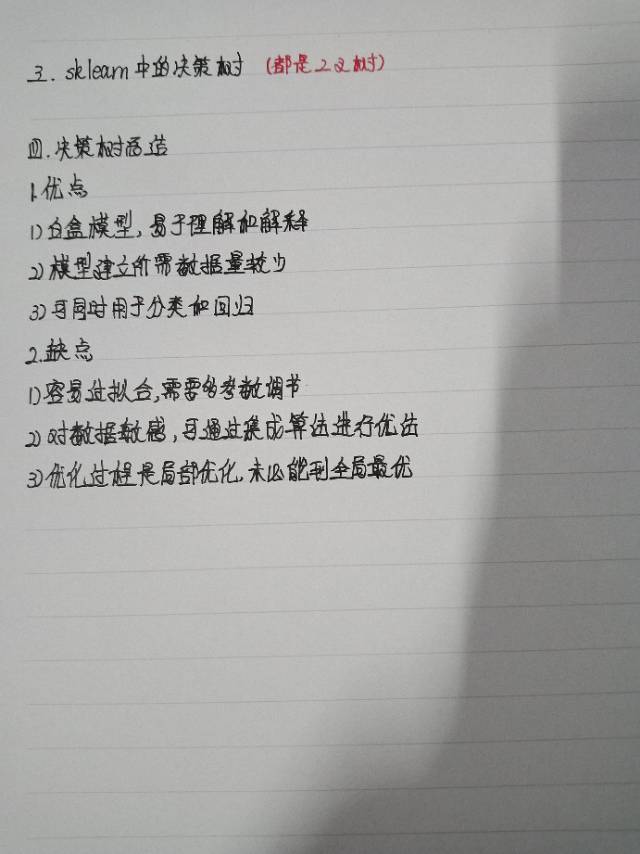 3. sklearn中的决策树 (都是2叉树)
四.决策树改造
1.优点
1)白盒模型,易于理解和解释
2)模型建立所需数据量较少
3)可同时用于分类和回归
2.缺点
1)容易过拟合,需要的参数调节
2)对数据敏感,可通过集成算法进行优化
3)优化过程是局部优化,未必能到全局最优